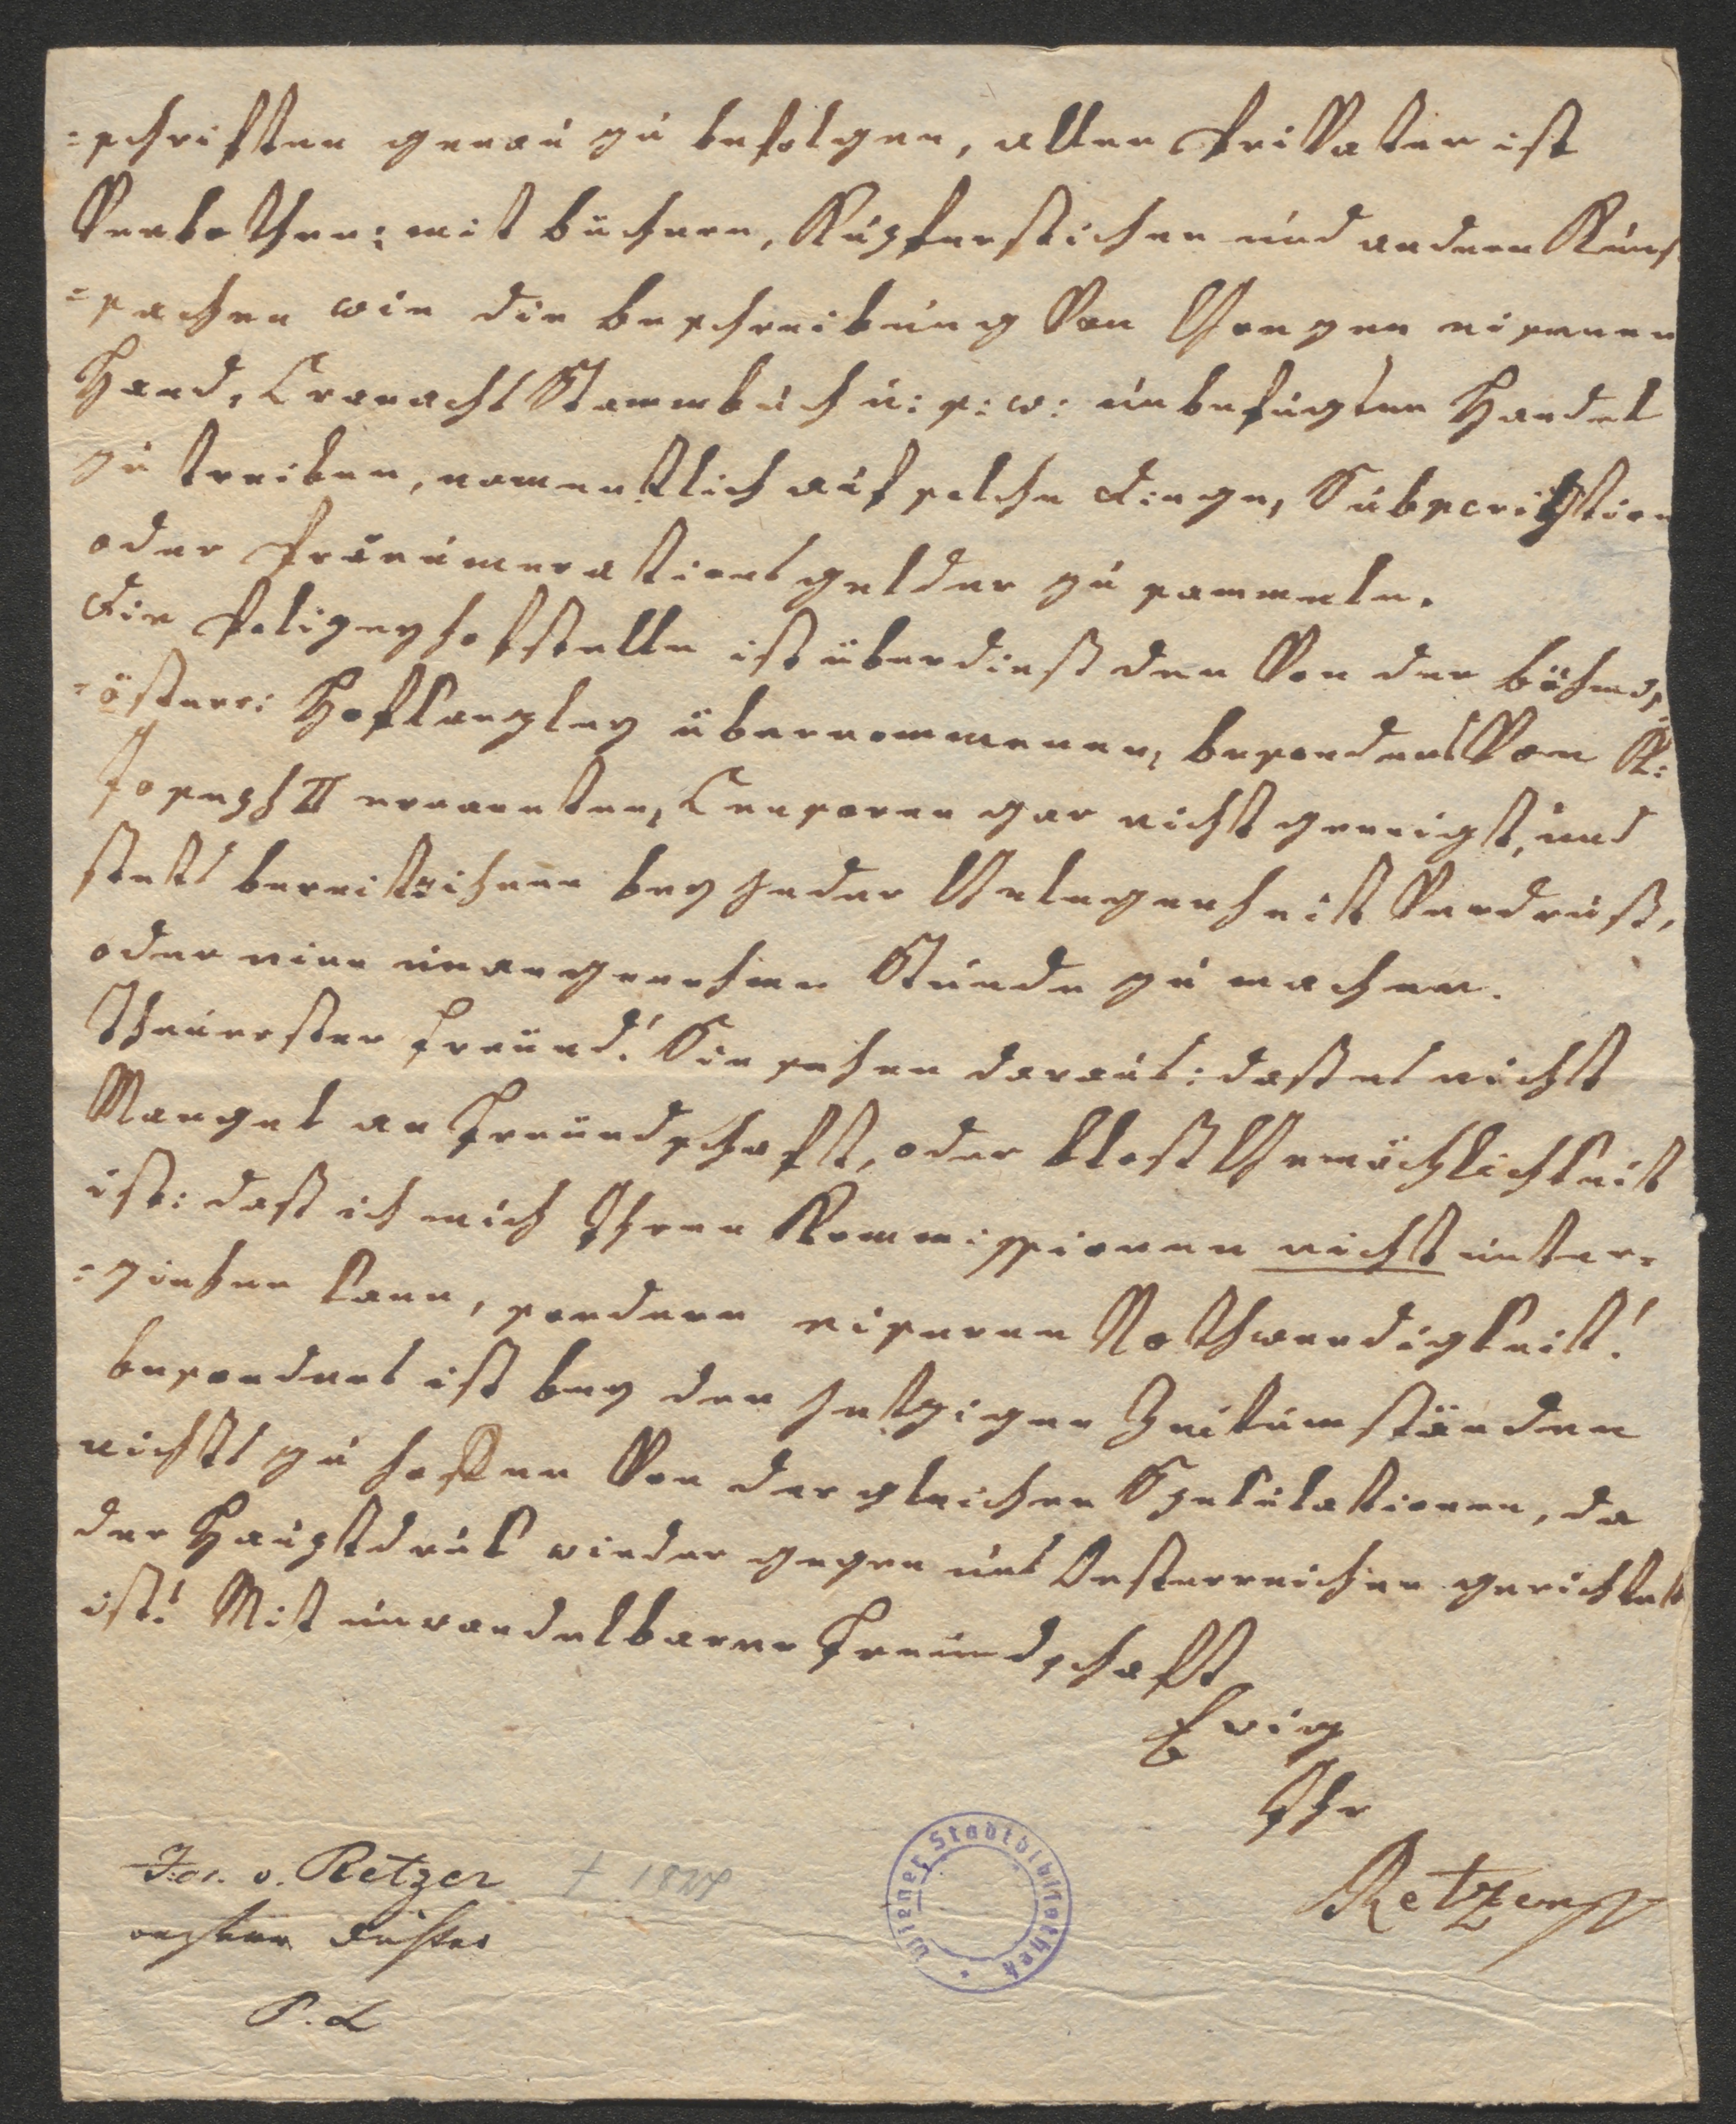 =schriften genau zu befolgen, allen Privaten ist
Verbothen: mit büchern, Kupferstichen und andern Kunst
=sachen wie die beschreibung Von Götzens eisernen
Hand, Cranachs Stammbuch u: s: w: unbefugten Handel
zu treiben, namentlich auf solche Dinge, Subscription
oder Pränumerationsgelder zu sammeln.
Die Polizeyhofstelle ist überdieß den Von der böhmis:
=österr: Hofkanzley übernommenen, besonders Vom K:
Joseph II ernannten, Censoren gar nicht geneigt, und
stets bereit ihnen bey jeder Gelegenheit Verdruß,
oder eine unangenehme Stunde zu machen.
Theuerster Freund! Sie sehen daraus: daß es nicht
Mangel an Freundschaft, oder bloß Gemächlichkeit
ist: daß ich mich Ihren Kommissionen nicht unter=
=ziehen kann, sondern eiserne Nothwendigkeit!
besonders ist bey den jetzigen Zeitumständen
nichts zu hoffen Von dergleichen Spekulationen, da
der Hauptdruk wieder gegen uns Oesterreicher gerichtet
ist! Mit unwandelbarer Freundschaft
Ewig
Ihr
Retzer
Jos. v. Retzer † 1824
Dichter
Wiener Stadtbibliothek